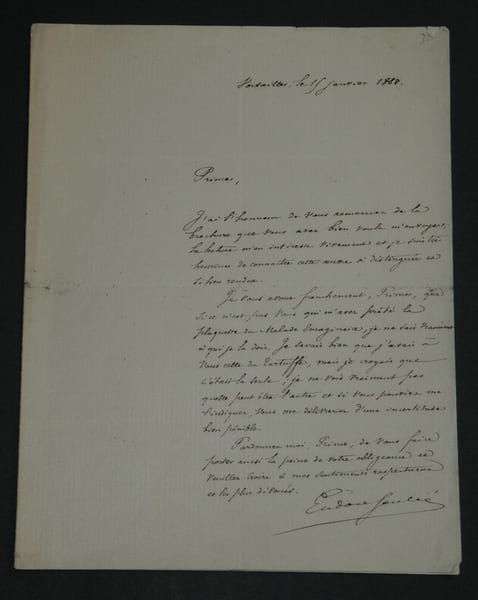 Versailles, le 15 janvier 1868.
Prince,
J'ai l'honneur de vous remercier de la
brochure que vous avez bien voulu m'envoyer;
la lecture m'en intéresse vivement et je suis très
heureux de connaître cette œuvre si distinguée et
si bien rendue.
Je vous avoue franchement, Prince, que
si ce n'est pas vous qui m'avez prêté la
plaquette du Malade Imaginaire, je ne sais vraiment
à qui je la dois. Je savais bien que j'avais à
vous celle du Tartuffe, mais je croyais que
c'était la seule; je ne vois vraiment pas
quelle peut être l'autre et si vous pouviez me
l'indiquer, vous me délivreriez d'une incertitude
bien pénible.
Pardonnez moi, Prince, de vous faire
porter aussi la peine de votre obligeance et
veuillez croire à mes sentiments respectueux
et les plus dévoués.
Eudore Soulié